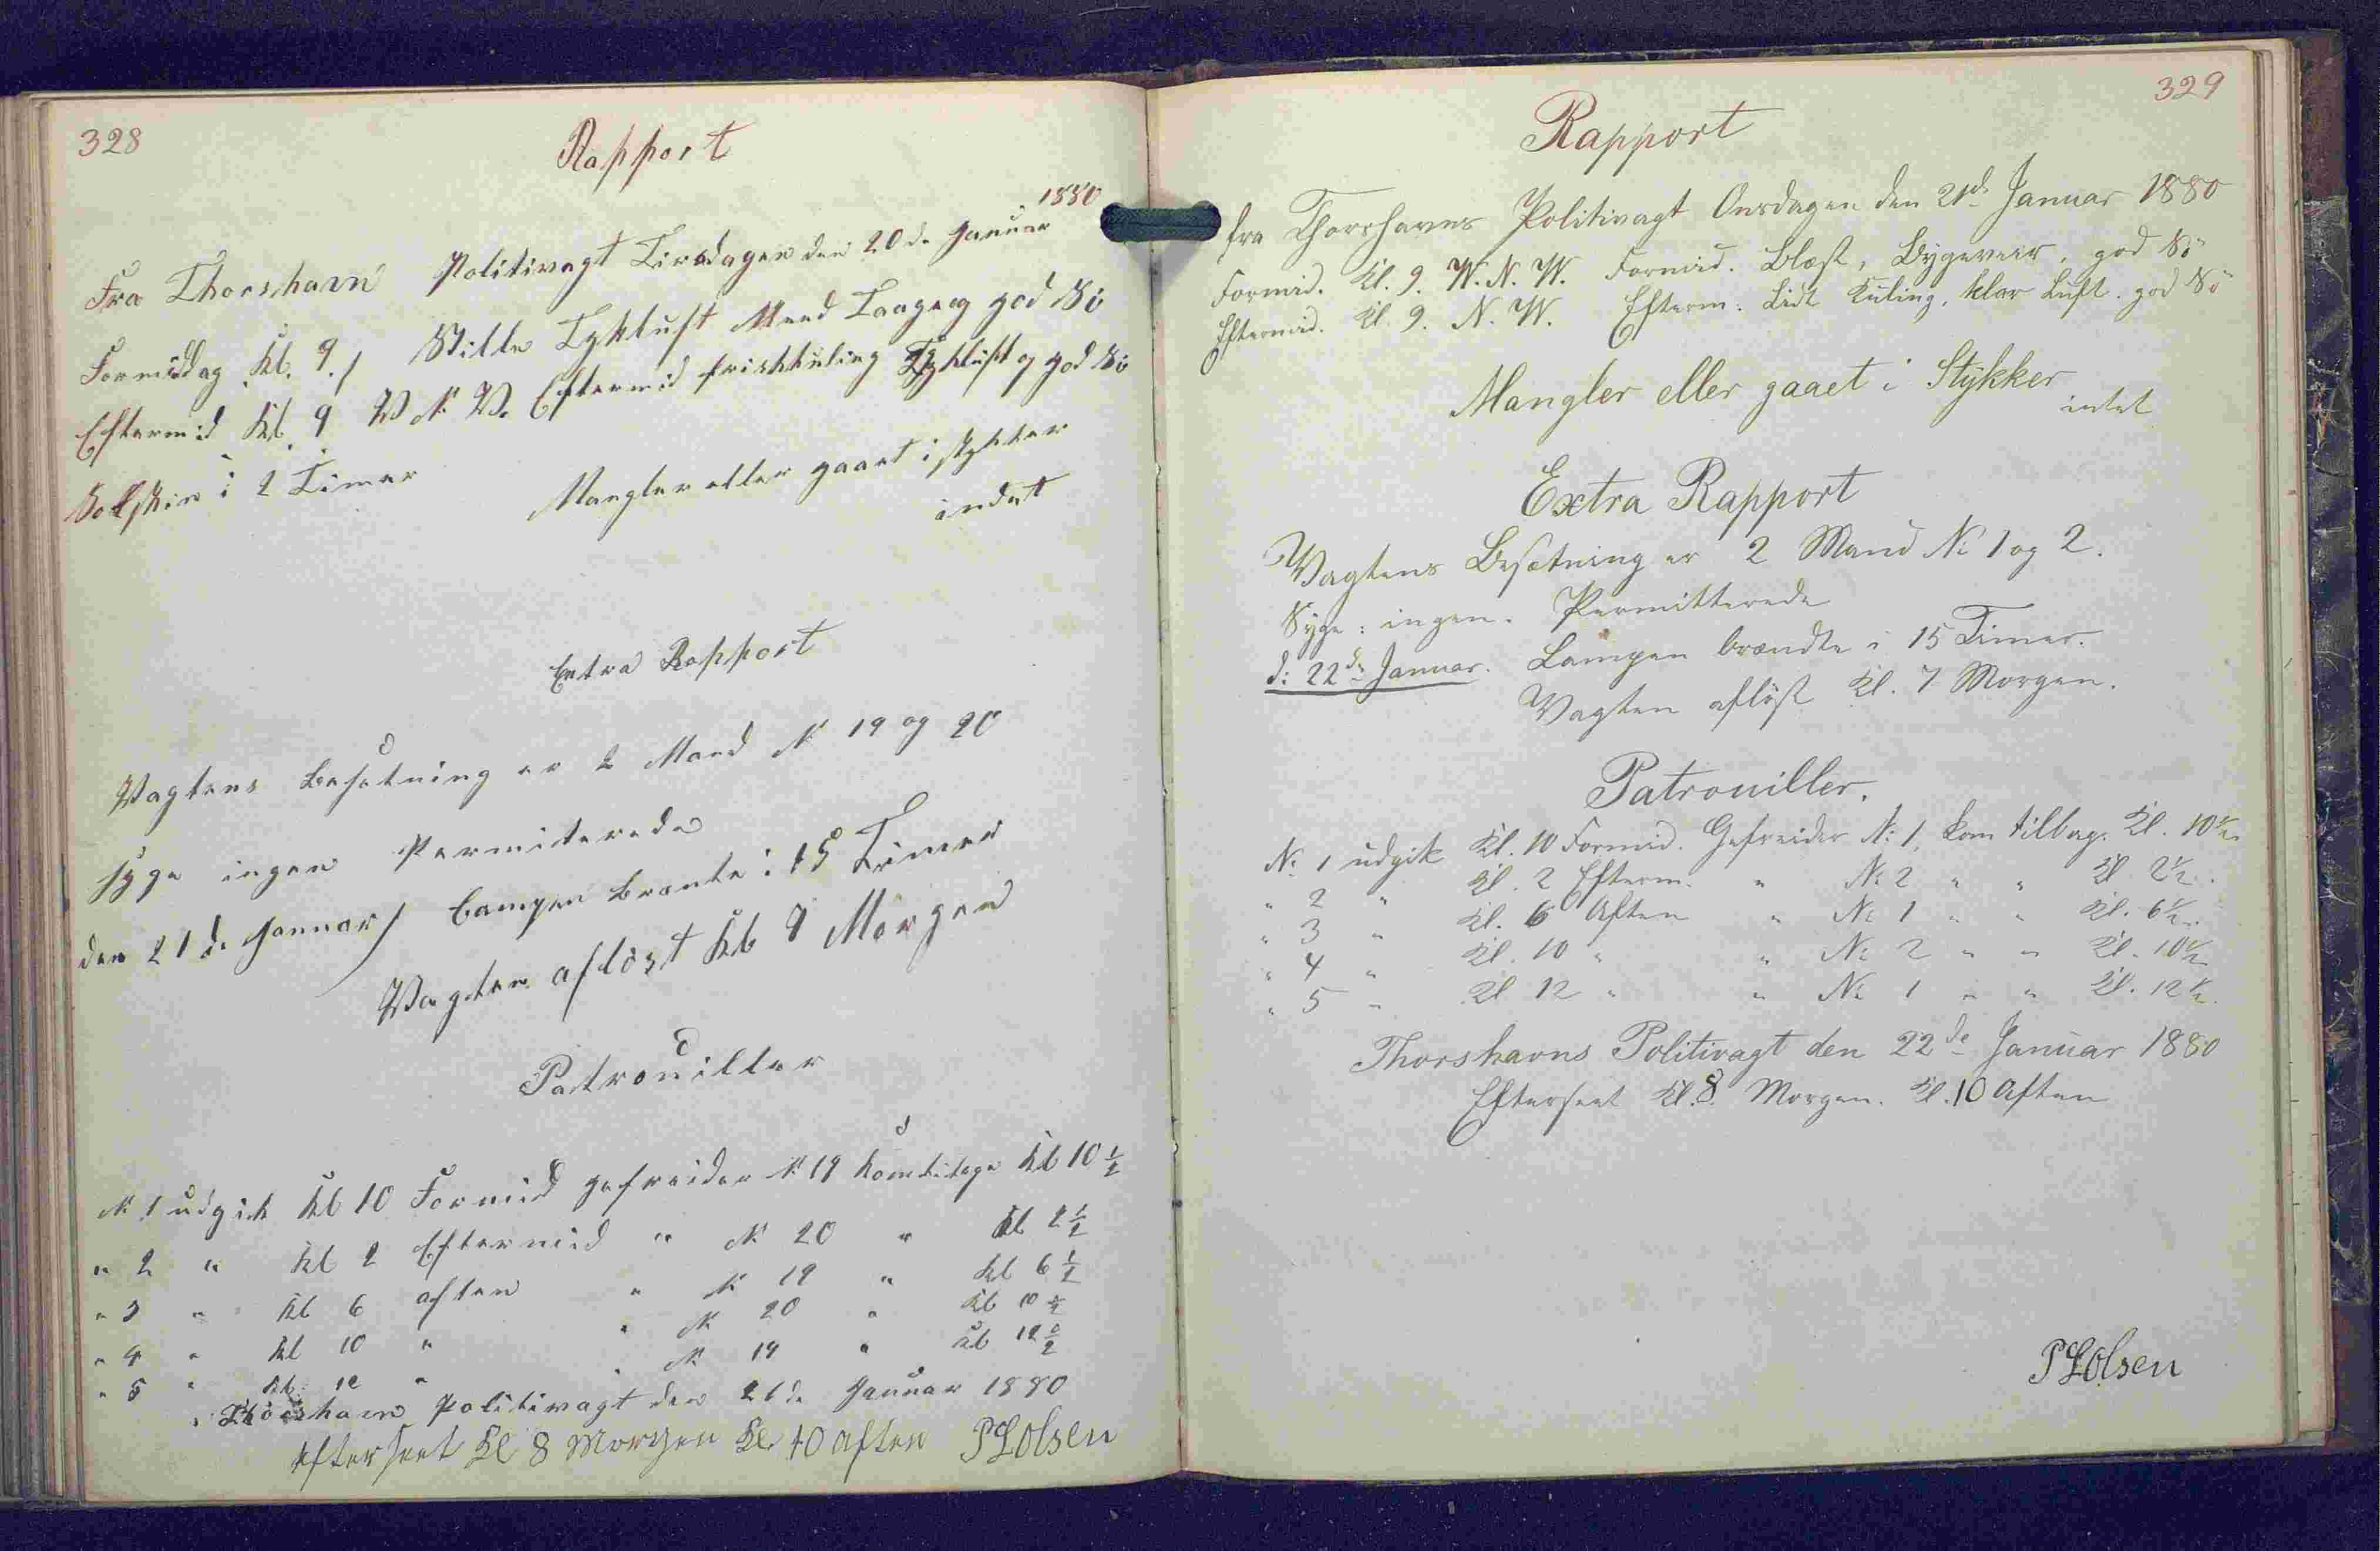 328
Rapport
1880
Fra Thorshavn Politivagt Tirsdagen den 20de Januar
Formiddag Kl. 9. / Stille Tykluft Med Taage og god Sö
Eftermid Kl. 9 V N V. Eftermid friskkuling Tykluft og god Sö
Solskin i 2 Timer
Mangler eller gaaet i stykker
indet
Extra Rapport
Vagtens Besætning er 2 Mand N 19 og 20
syge ingen Permiterede
den 21de Januar / Lampen brænte i 15 Timer
Vagten aflöst Kl 7 Morgen
Patrouiller
N. 1 udgik Kl 10 Formid gefreider N 19 Kom tilbage Kl 10 ½
" 2 " Kl 2 Eftermid " N 20 " Kl 2 ½
" 3 " Kl 6 aften " N 19 " Kl 6 ½
" 4 " Kl 10 " " N 20 " Kl 10 ½
" 5 " Kl. 12 " " N 19 " Kl 12 ½
Thorshavn Politivagt den 21de Januar 1880
Efterseet Kl 8 Morgen Kl. 10 Aften P L Olsen
329
Rapport
fra Thorshavns Politivagt Onsdagen den 21de Januar 1880
Formid. Kl. 9. W. N. W. Formid. Blæst, Bygeveir, god Sö
Eftermid. Kl. 9. N. W. Efterm. Lidt Kuling, klar Luft. god Sö
Mangler eller gaaet i Stykker
intet
Extra Rapport
Vagtens Besætning er 2 Mand N: 1 og 2.
Syge: ingen. Permitterede
d: 22de Januar. Lampen brændte i 15 Timer.
Vagten aflöst Kl. 7 Morgen.
Patrouiller.
N: 1 udgik Kl. 10 Formid. Gefreider N: 1, kom tilbage Kl. 10½
" 2 " Kl. 2 Efterm. " N: 2 " " Kl 2½.
" 3 " Kl. 6 Aften " N: 1 " " Kl. 6½.
" 4 " Kl. 10 " " N: 2 " " Kl. 10½
" 5 " Kl 12 " " N: 1 " " Kl. 12½.
Thorshavns Politivagt den 22de Januar 1880
Efterseet Kl. 8. Morgen. Kl. 10 Aften
P L Olsen